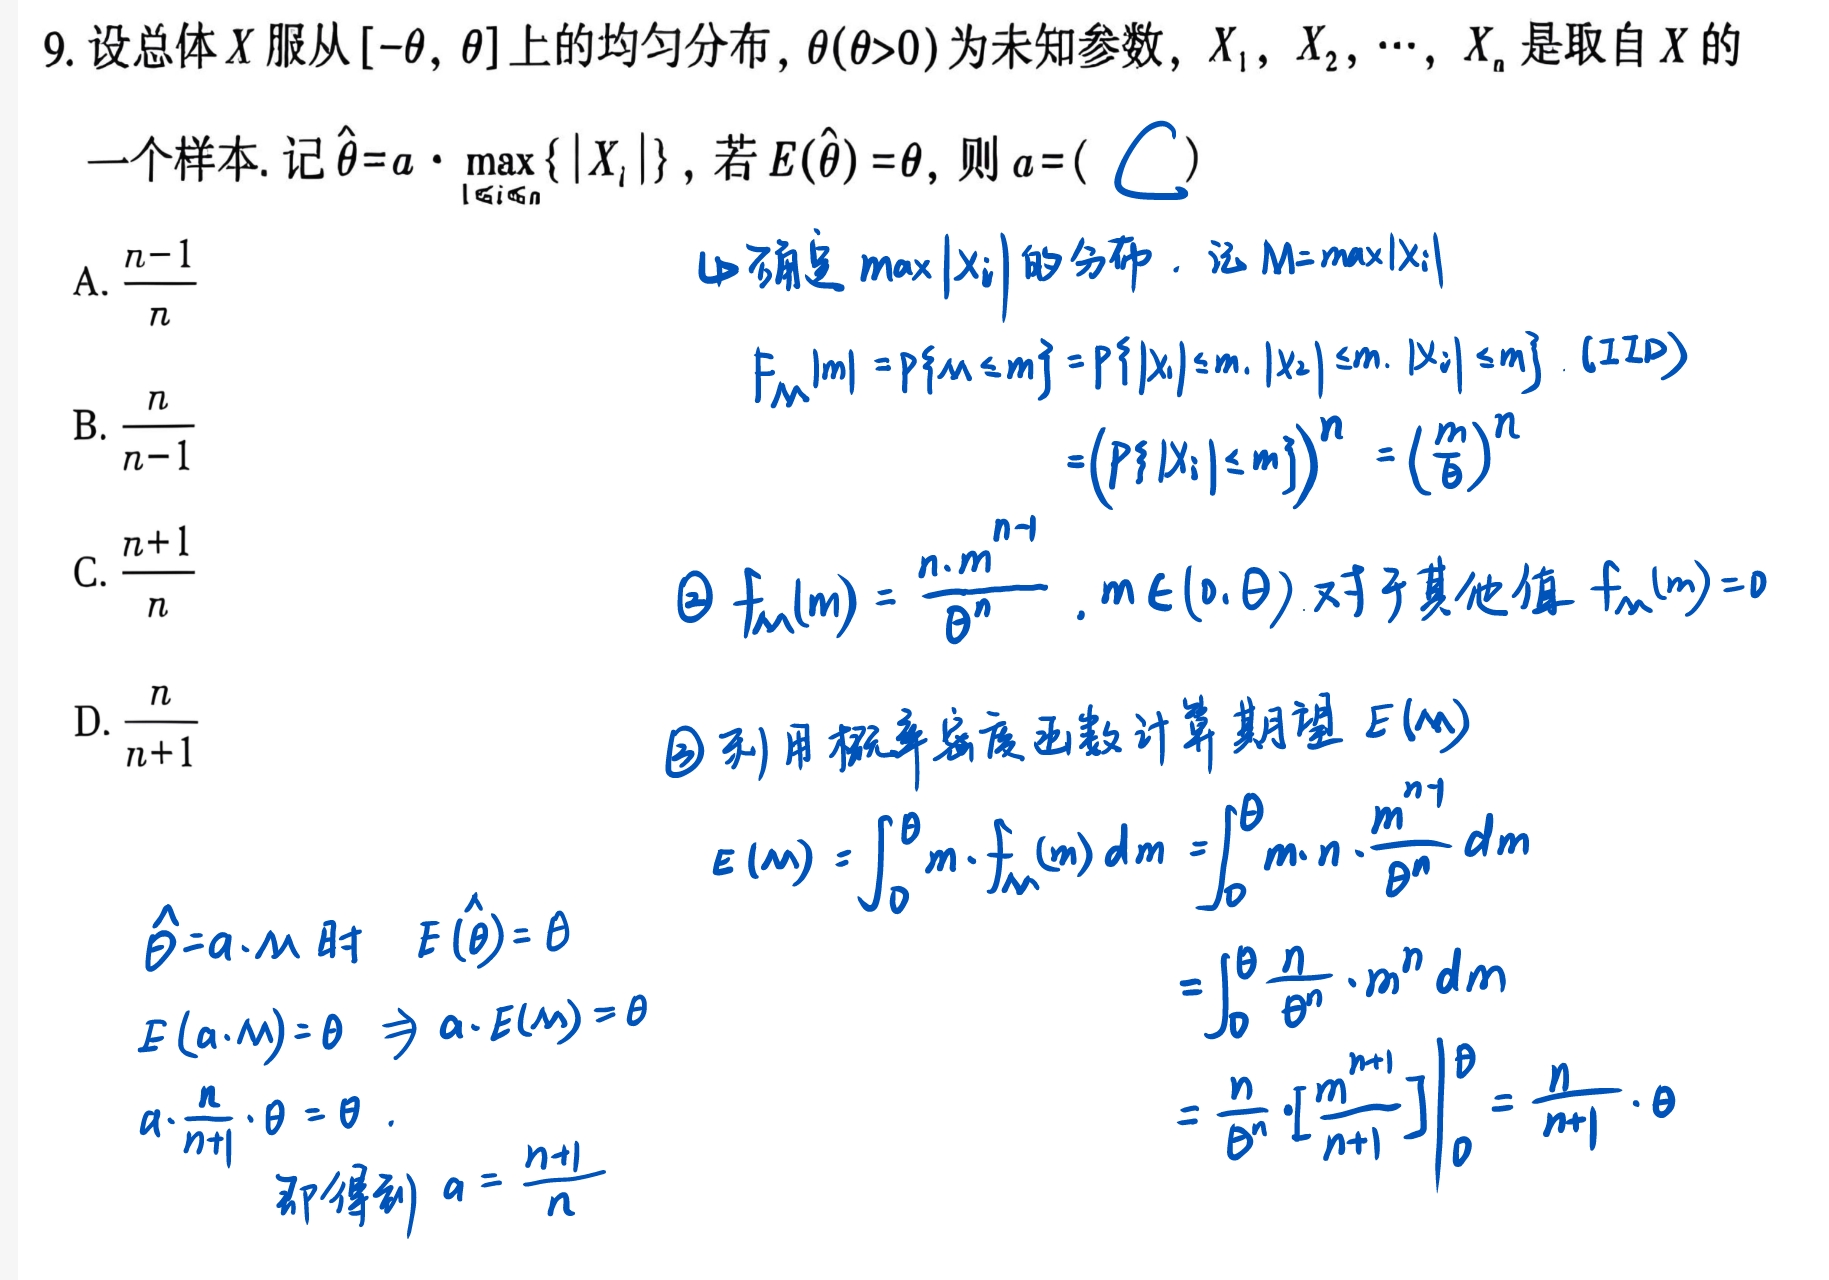 9. 设总体 X 服从[-θ, θ]上的均匀分布, θ(θ>0)为未知参数, X₁, X₂, …, Xₙ 是取自 X 的
一个样本. 记 θ̂=a · max{|Xᵢ|}, 若 E(θ̂)=θ, 则 a=( C )
1≤i≤n
A. (n-1)/n
B. n/(n-1)
C. (n+1)/n
D. n/(n+1)
↳确定 max|Xᵢ| 的分布. 记 M=max|Xᵢ|
F_M|m| = P{M≤m} = P{|X₁|≤m. |X₂|≤m. |Xᵢ|≤m}. (IID)
=(P{|Xᵢ|≤m})ⁿ = (m/θ)ⁿ
② f_M(m) = n·mⁿ⁻¹/θⁿ . m∈(0.θ). 对于其他值 f_M(m)=0
③ 利用概率密度函数计算期望 E(M)
E(M) = ∫₀^θ m·f_M(m) dm = ∫₀^θ m·n·mⁿ⁻¹/θⁿ dm
= ∫₀^θ n/θⁿ · mⁿ dm
= n/θⁿ ·[mⁿ⁺¹/(n+1)]|₀^θ = n/(n+1) · θ
θ̂=a·M 时 E(θ̂)=θ
E(a·M)=θ ⇒ a·E(M)=θ
a· n/(n+1) ·θ = θ .
即得到 a = (n+1)/n